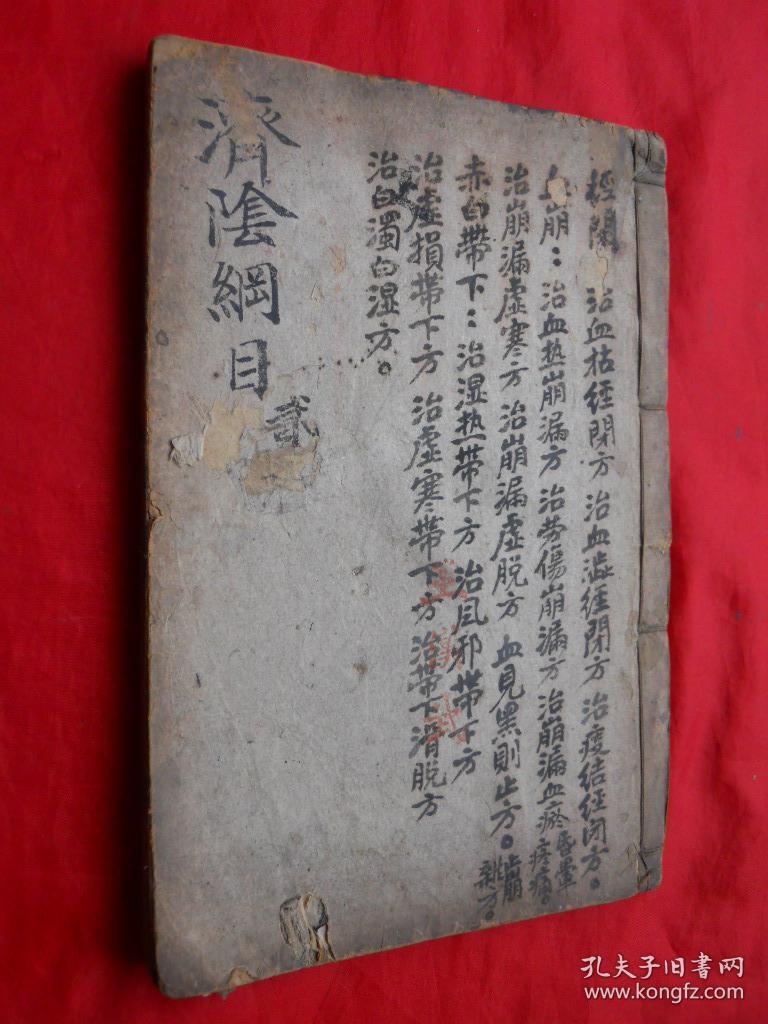 經閉：治血枯經閉方 治血澁經閉方 治痰結經闭方。
血崩：治血热崩漏方 治劳傷崩漏方 治崩漏血瘀疼痛。昏暈
治崩漏虚寒方 治崩漏虚脱方 血見黑則止方。止崩雜方。
赤白帶下：治湿热带下方 治风邪带下方
治虚損带下方 治虚寒带下方 治带下滑脱方
治白濁白湿方。
濟陰綱目
貳
孔夫子旧書网
www.kongfz.com